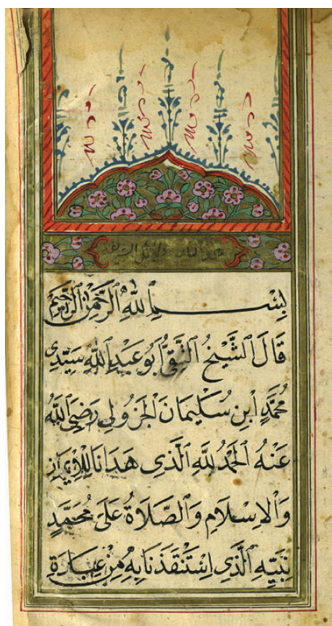 بِسْمِ اللّٰهِ الرَّحْمٰنِ الرَّحِيْمِ
قَالَ الشَّيْخُ الفَقِي اَبُو عَبْدِ اللّٰهِ سَيِّدِى
مُحَمَّدٍ اِبْنِ سُلَيْمَانَ الجَزُولِى رَضِىَ اللّٰهُ
عَنْهُ الحَمْدُ لِلّٰهِ الَّذِى هَدَانَا لِلْاِيمَانِ
وَالْاِسْلَامِ وَالصَّلَاةُ عَلَى مُحَمَّدٍ
نَبِيِّهِ الَّذِى اِسْتَنْقَذَنَا بِهِ مِنْ عِبَادَةِ